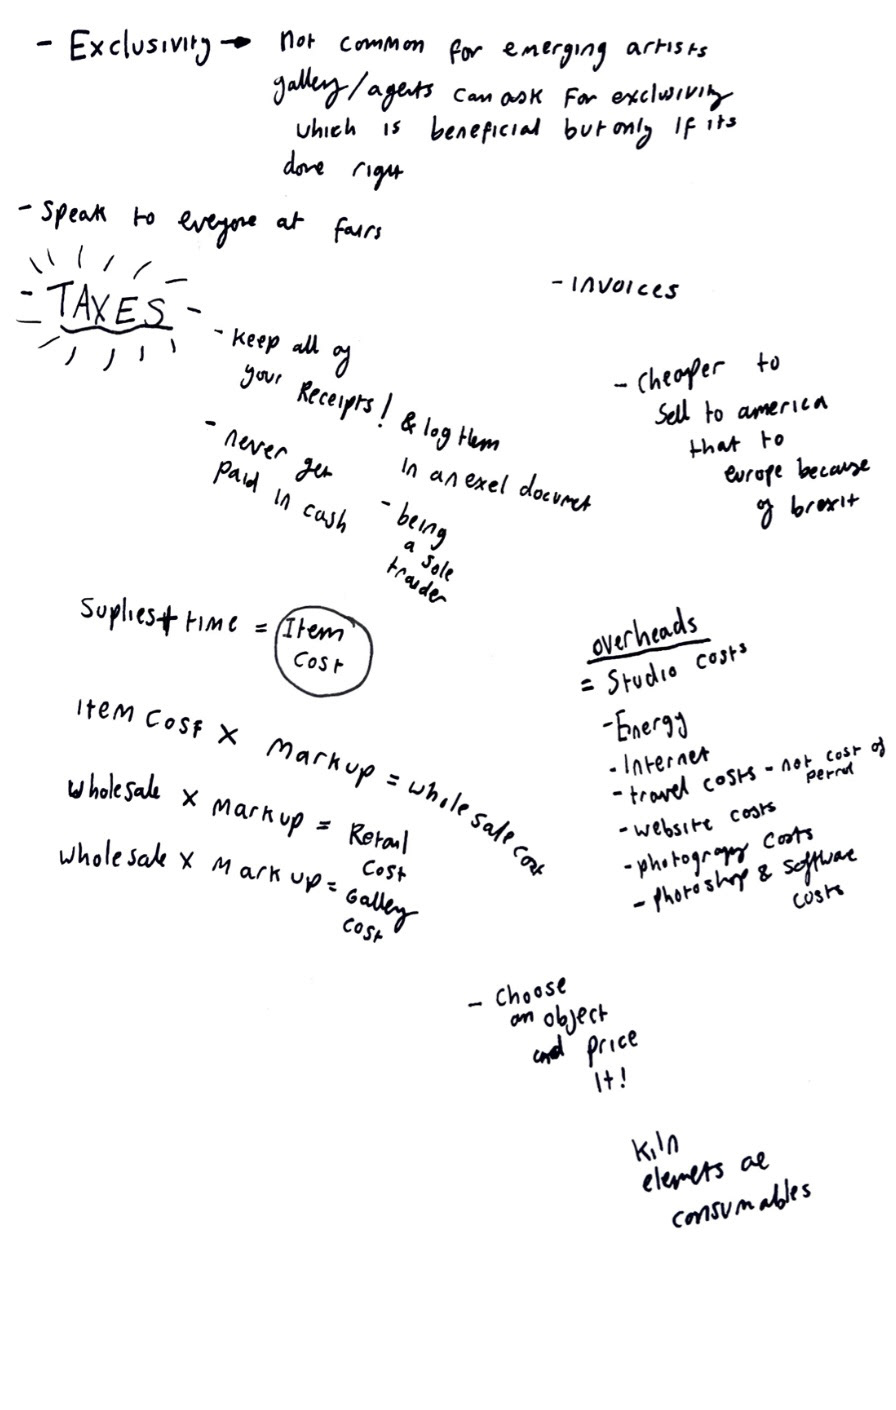 - Exclusivity → Not common for emerging artists
gallery/agents can ask for exclusivity
which is beneficial but only if its
done right
- Speak to eveyone at fairs
- TAXES -
- Keep all of
your Receipts! & log them
in an exel documet
- never get
paid in cash
- being
a sole
traider
- Invoices
- Cheaper to
sell to america
that to
europe because
of brexit
Suplies + time = Item
Cost
Item Cost x Markup = whole sale cost
wholesale x Markup = Retail
Cost
whole sale x Mark up = Galley
cost
overheads
= Studio costs
- Energy
- Internet
- travel costs - not cost of
petrol
- website costs
- photograpy costs
- photoshop & software
costs
- Choose
an object
and price
It!
Kiln
elemets ae
consumables